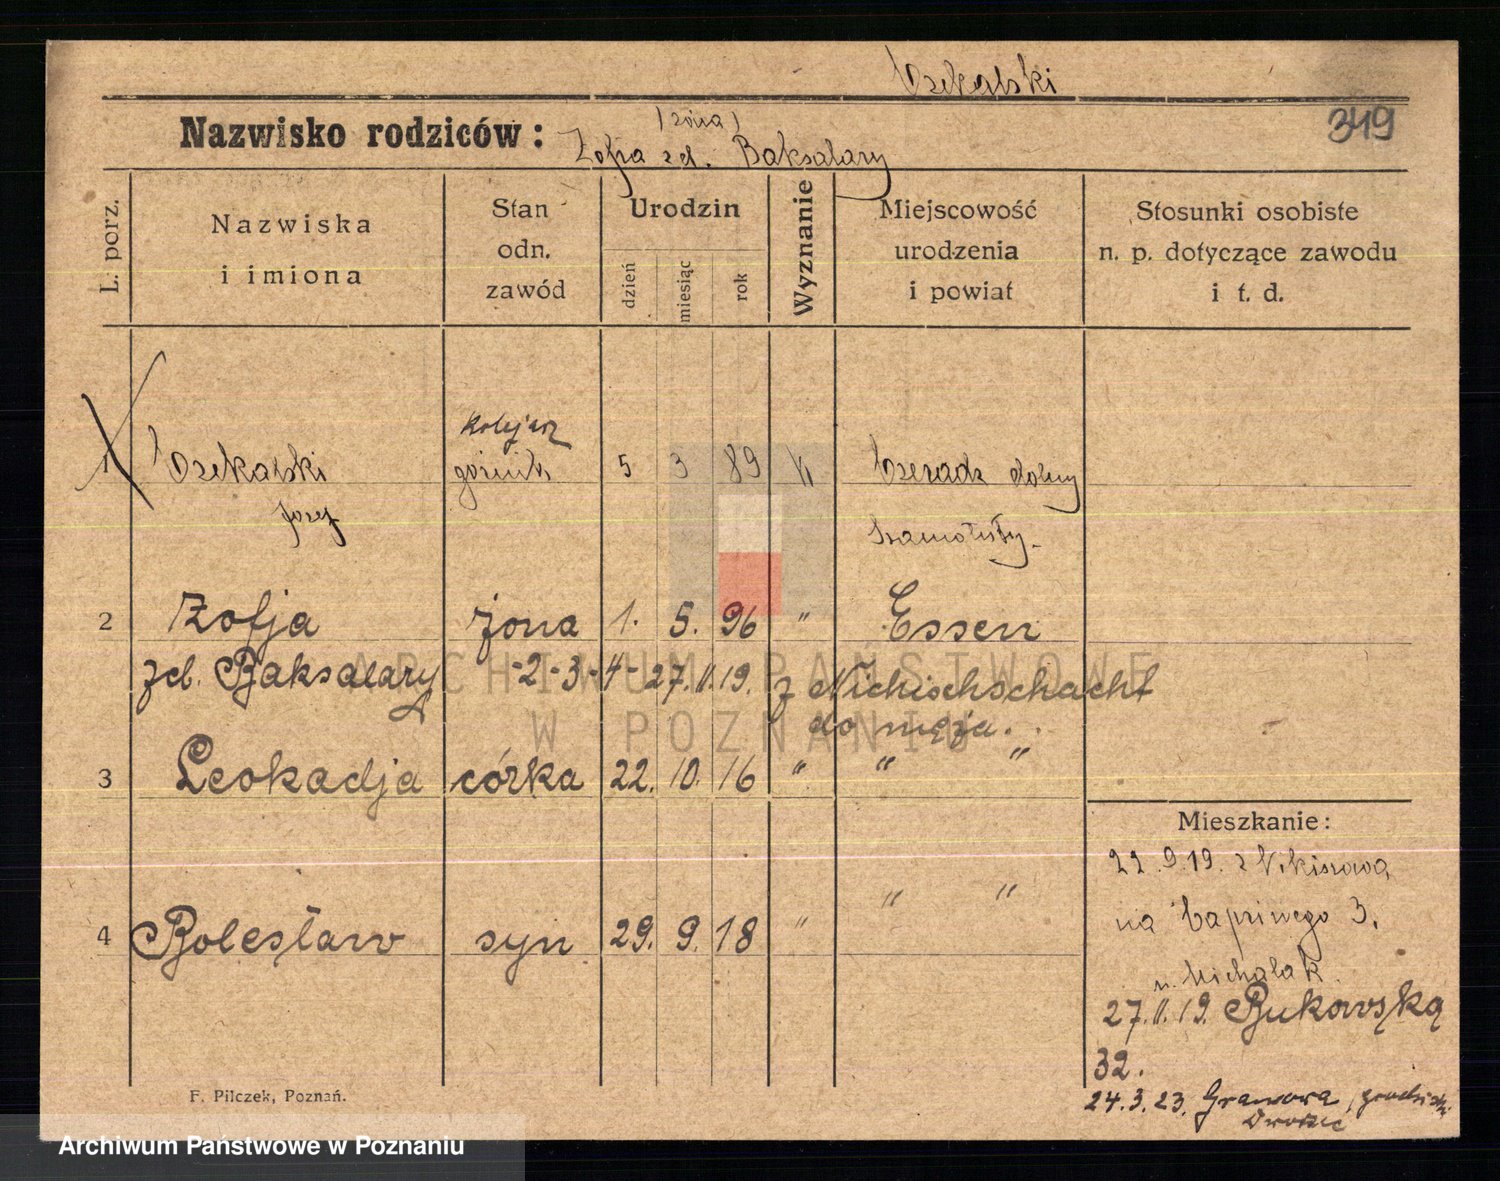 Czekalski
349
(żona)
Nazwisko rodziców: Zofia zd. Baksalary
L. porz.
Nazwiska
i imiona
Stan
odn.
zawód
Urodzin
dzień
miesiąc
rok
Wyznanie
Miejscowość
urodzenia
i powiat
Stosunki osobiste
n. p. dotyczące zawodu
i t. d.
kolejarz
1 Czekalski górnik 5 3 89 K
Józef Szamotuły
2 Zofja żona 1. 5. 96 " Essen
zd. Baksalary -2-3-4- 27.11.19. z Nickischschacht
do męża.
3 Leokadja córka 22. 10. 16 " " "
Mieszkanie:
22.9.19. z
na 3.
4 Bolesław syn 29. 9. 18 " " "
u. Michalak
27.11.19. Bukowską
32.
24.3.23.
F. Pilczek, Poznań.
ARCHIWUM PAŃSTWOWE
W POZNANIU
Archiwum Państwowe w Poznaniu